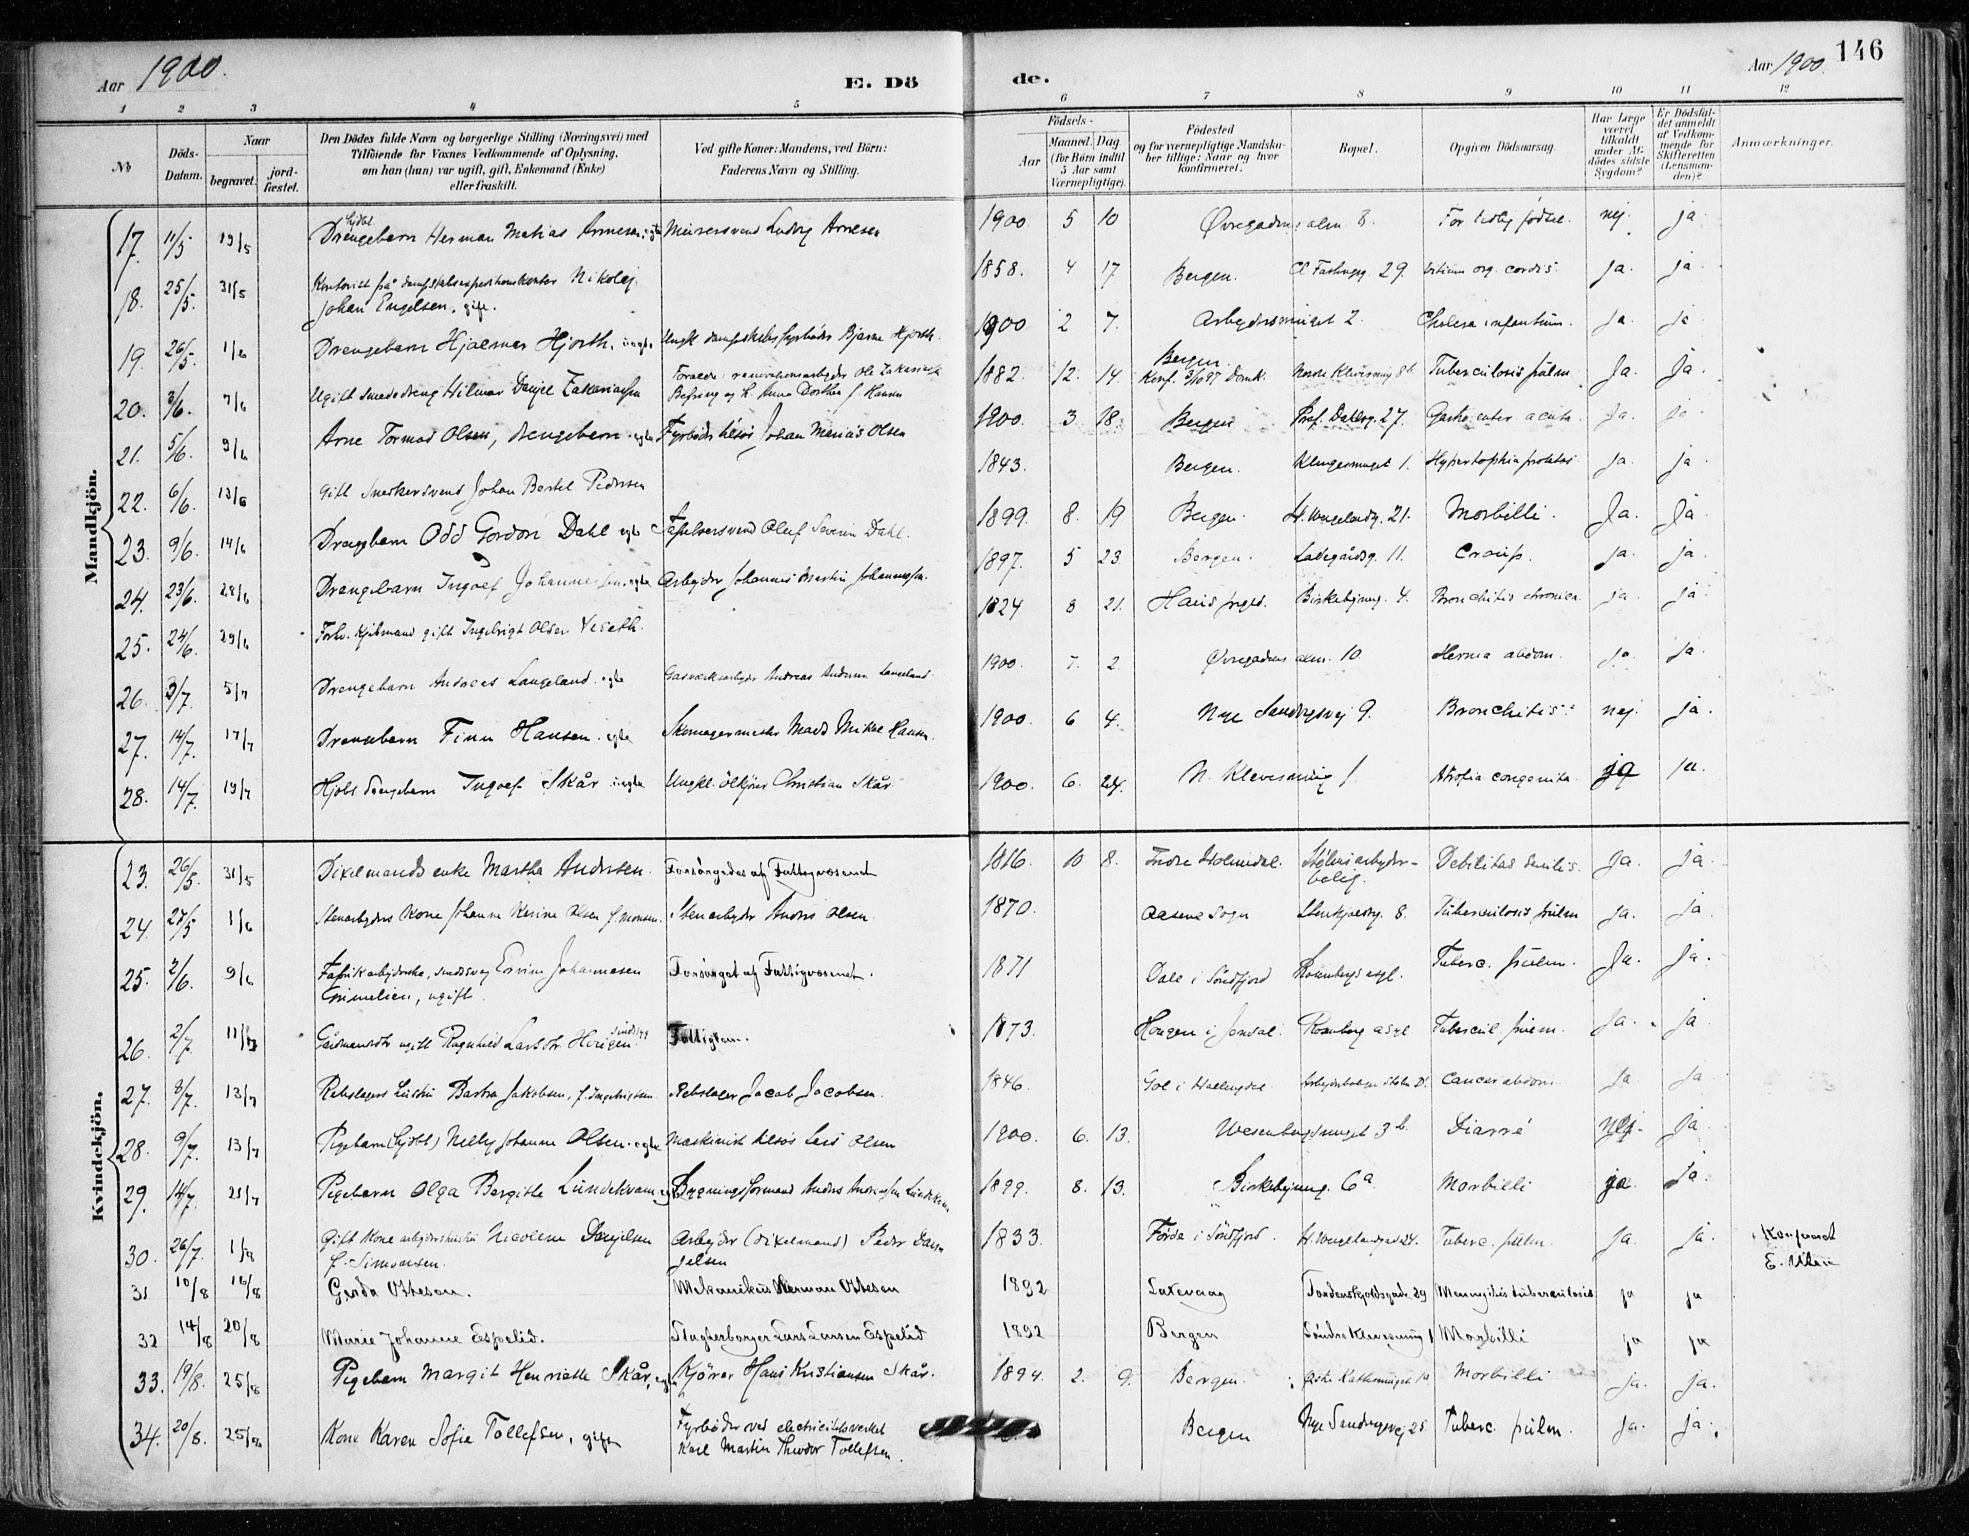 Aar 1900.
E. Dö
de.
Aar 1900.
146
1 2 3 4 5 6 7 8 9 10 11 12
No
Döds-Datum.
Naar
begravet.
jord-fæstet.
Den Dödes fulde Navn og borgerlige Stilling (Næringsvei) med
Tilföiende for Voxnes Vedkommende af Oplysning,
om han (hun) var ugift, gift, Enkemand (Enke)
eller fraskilt.
Ved gifte Koner: Mandens, ved Börn:
Faderens Navn og Stilling.
Födsels-
Aar
Maaned. Dag
(for Börn indtil
5 Aar samt
Værnepligtige).
Födested
og for værnepligtige Mandska-
ber tillige: Naar og hvor
konfirmeret.
Bopæl.
Opgiven Dödsaarsag.
Har Læge
været
tilkaldt
under Af-
dödes sidste
Sygdom?
Er Dödsfal-
det anmeldt
af Vedkom-
mende for
Skifteretten
(Lensman-
den)?
Anmærkninger.
Mandkjön.
17. 11/5 19/5 Drengebarn Herman Matias Arnesen, Murersvend Ludvig Arnesen 1900 5 10 Øvregadens alm. 8. For tidlig fødsel. nej. ja
18. 25/5. 31/5 Kontorist på dampskibsexpeditionskontor Nikolej
Johan Engelsen, gift. 1858. 4 17 Bergen. 29. vitium org. cordis. ja. ja
19. 26/5. 1/6 Drengebarn Hjalmar Hjorth, uægte Ungk. dampskibsfyrbøder Bjarne Hjorth. 1900 2 7. Arbeydersmuget 2. Cholera infantum. ja. ja
20. 3/6. 7/6 Ugift smededreng Hilmar Danjel Zakariassen Forældre: renovationsarbejder Ole Zakariassen
og h. Anna Dorthea f. Hansen 1882. 12. 14. Bergen
Konf. 3/10 97 Domk. Nordre Klevesmug 8b Tuberculosis pulm. Ja. Ja
21. 5/6. 9/6 Arne Tormod Olsen, drengebarn. egte Fyrbøder tilsøs Johan Marius Olsen 1900. 3 18. Bergen Prof. Dahlsg. 27. Gastro enter. acuta. Ja. ja
22. 6/6. 13/6 Gift Snedkersvend Johan Bertel Pedersen 1843. Bergen. 1. Hypertophia prostatæ ja. ja
23. 9/6. 14/6 Drengebarn Odd Gordon Dahl egte Oluf Severin Dahl. 1899. 8. 19 Bergen. H. Wergelandsg. 21. Morbilli. Ja. Ja
24. 23/6. 28/6 Drengebarn Ingolf Johannessen. egte Arbejder Johannes Martin Johannessen. 1897. 5 23. Bergen. Ladegårdsg. 11. Croup. ja. ja
25. 24/6. 29/6 Forhv. Kjøbmand gift Ingebrigt Olsen Veseth. 1824 8 21. Haus pregd. Birkebejnerg. 4. Bronchitis chronica. ja. ja
26. 3/7. 5/7 Drengebarn Andreas Langeland. egte Gasværksarbejder Andreas Andersen Langeland 1900 7. 2 Øvregadens alm. 10 Hernia abdom. ja. ja.
27. 14/7. 17/7 Drengebarn Finn Hansen. egte Skomagermester Mads Mikal Hansen. 1900. 6 4. Nye Sandvigsvej 9. Bronchitis. nej. ja.
28. 14/7. 19/7 Hjdbt. Drengebarn Ingolf Skår uegte Ungkl. ølkjører Christian Skår 1900. 6. 24. N. Klevesmug 1. Atrofia congenita. ja ja
Kvindekjön.
23. 26/5. 31/5 Dixelmands enke Martha Andersen. Forsörgedes af Fattigvæsenet 1816. 10 8. Indre Holmedal. Stölens arbejder-
bolig. Debilitas senilis. Ja. ja.
24. 27/5 1/6 Stenarbejders Kone Johanne Karine Olsen f. Monsen. Stenarbejder Anders Olsen. 1870. Aasene Sogn Stenkjælderg. 8. Tuberculosis pulm ja. ja
25. 2/6. 9/6 Fabrikarbejderske, sindssyg Johannesen
Grimelien, ugift. Forsörget af Fattigvæsenet. 1871 Dale i Söndfjord Rosenbergs asyl. Tuberc. pulm. Ja. ja.
26. 2/7. 11/7 Gårdmandsdtr. ugift Ragnhild Larsdtr. Haugen. sindssyg Fattiglem. 1873. Haugen i Jondal. Rosenberg asyl Tubercul. pulm. Ja. ja
27. 8/7. 13/7 Rebslagers hustru Barbra Jakobsen, f. Ingebrigtsen. Rebslager Jacob Jacobsen. 1846. Gol i Hallingdal Cancer abdom. Ja. Ja
28. 9/7. 13/7 Pigebarn (hjdbt) Nelly Johanne Olsen. egte Maskinist tilsøs Lars Olsen 1900. 6. 13. Wesenbergsmuget 3b. Diarré nej. Ja.
29. 14/7. 21/7 Pigebarn Olga Bergitte Lundekvam egte Bygningsformand Anders Andersen Lundekvam 1899. 8. 13. Birkebejnerg. 6a Morbilli ja. Ja.
30. 26/7. 1/8 Gift Kone arbejderhustru Nicoline Danjelsen
f. Simonsen. Arbejder (dixelmand) Peder Dan-
jelsen 1833. Førde i Söndfjord. H. Wergelandsgad 24. Tuberc. pulm. Ja. ja.
31 10/8 16/8 Gerda Ottesen. Mekanikus Herman Ottesen 1892 Laxevaag Tordenskjoldsgade 29 Meningitis tuberculosis ja ja
32 14/8 20/8 Marie Johanne Espelid. Slagterborger Lars Larsen Espelid 1892 Bergen Söndre Klevesmug 1 Morbilli ja ja
33. 19/8. 25/8 Pigebarn Margit Henriette Skår, egte Kjører Hans Kristiansen Skår. 1894. 2. 9. Bergen. Morbilli ja. ja.
34. 20/8. 25/8 Kone Karen Sofie Tollefsen, gift Fyrbøder ved electricitetsverket
Karl Martin Theodor Tollefsen. Bergen Nye Sandvigsvej 25. Tuberc. pulm. Ja. ja.